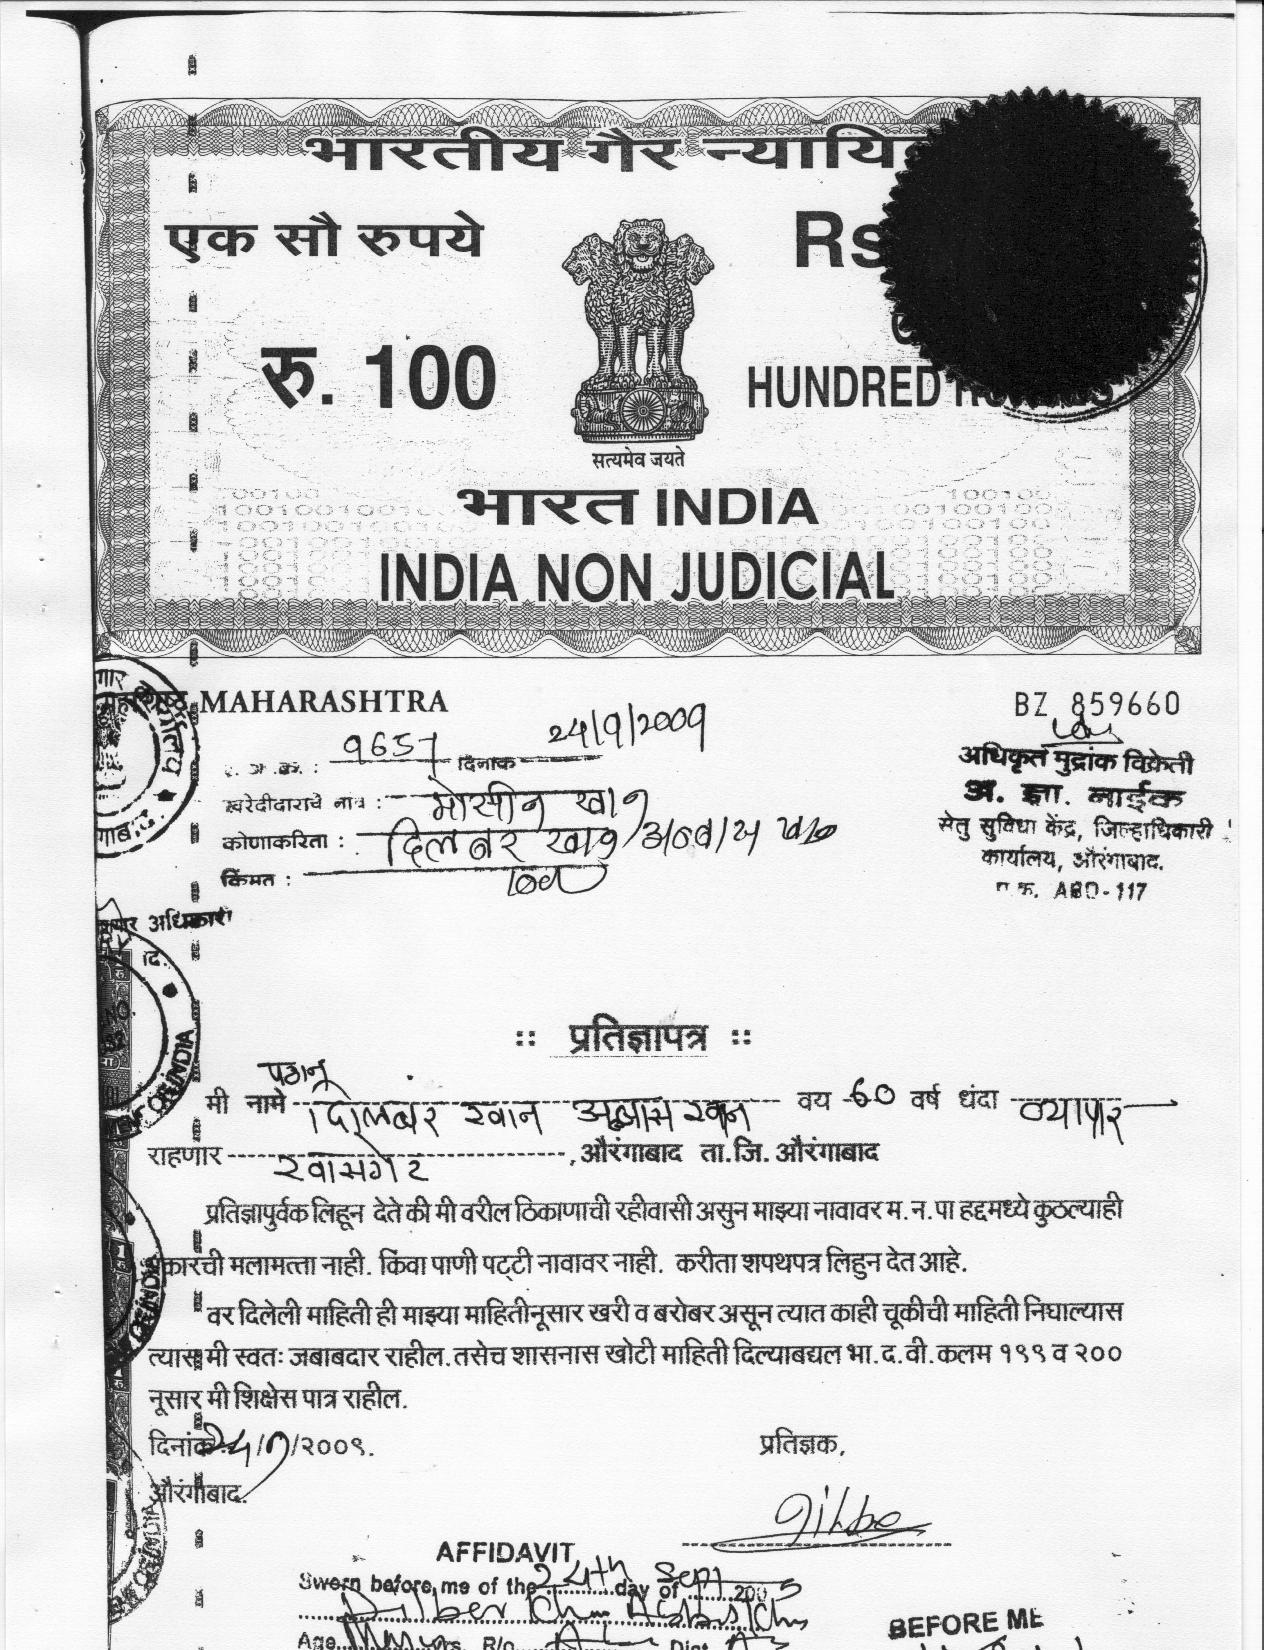 भारतीय गैर
एक सौ रुपये
Rs
रु. 100
HUNDRED
सत्यमेव जयते
भारत INDIA
INDIA NON JUDICIAL
MAHARASHTRA
BZ 859660
दिनांक 24/9/2009
अधिकृत मुद्रांक विक्रेती
खरेदीदाराचे नाव : मोसीन खान
अ. ज्ञा. नाईक
कोणाकरिता : दिलबर खान
सेतु सुविधा केंद्र, जिल्हाधिकारी
किंमत : 100
कार्यालय, औरंगाबाद.
:: प्रतिज्ञापत्र ::
पठान
मी नामे दिलबर खान अब्बास खान वय 60 वर्ष धंदा व्यापार
राहणार , औरंगाबाद ता.जि. औरंगाबाद
प्रतिज्ञापुर्वक लिहून देते की मी वरील ठिकाणाची रहीवासी असुन माझ्या नावावर म.न.पा हद्दमध्ये कुठल्याही
मलामत्ता नाही. किंवा पाणी पट्टी नावावर नाही. करीता शपथपत्र लिहुन देत आहे.
वर दिलेली माहिती ही माझ्या माहितीनूसार खरी व बरोबर असून त्यात काही चूकीची माहिती निघाल्यास
त्यास मी स्वतः जबाबदार राहील. तसेच शासनास खोटी माहिती दिल्याबद्यल भा.द.वी.कलम १९९ व २००
नूसार मी शिक्षेस पात्र राहील.
दिनांक /२००९.
प्रतिज्ञक,
औरंगाबाद.
AFFIDAVIT
Sworn before me of the 24th day of Sept 200
BEFORE ME
Age
R/o
Dist